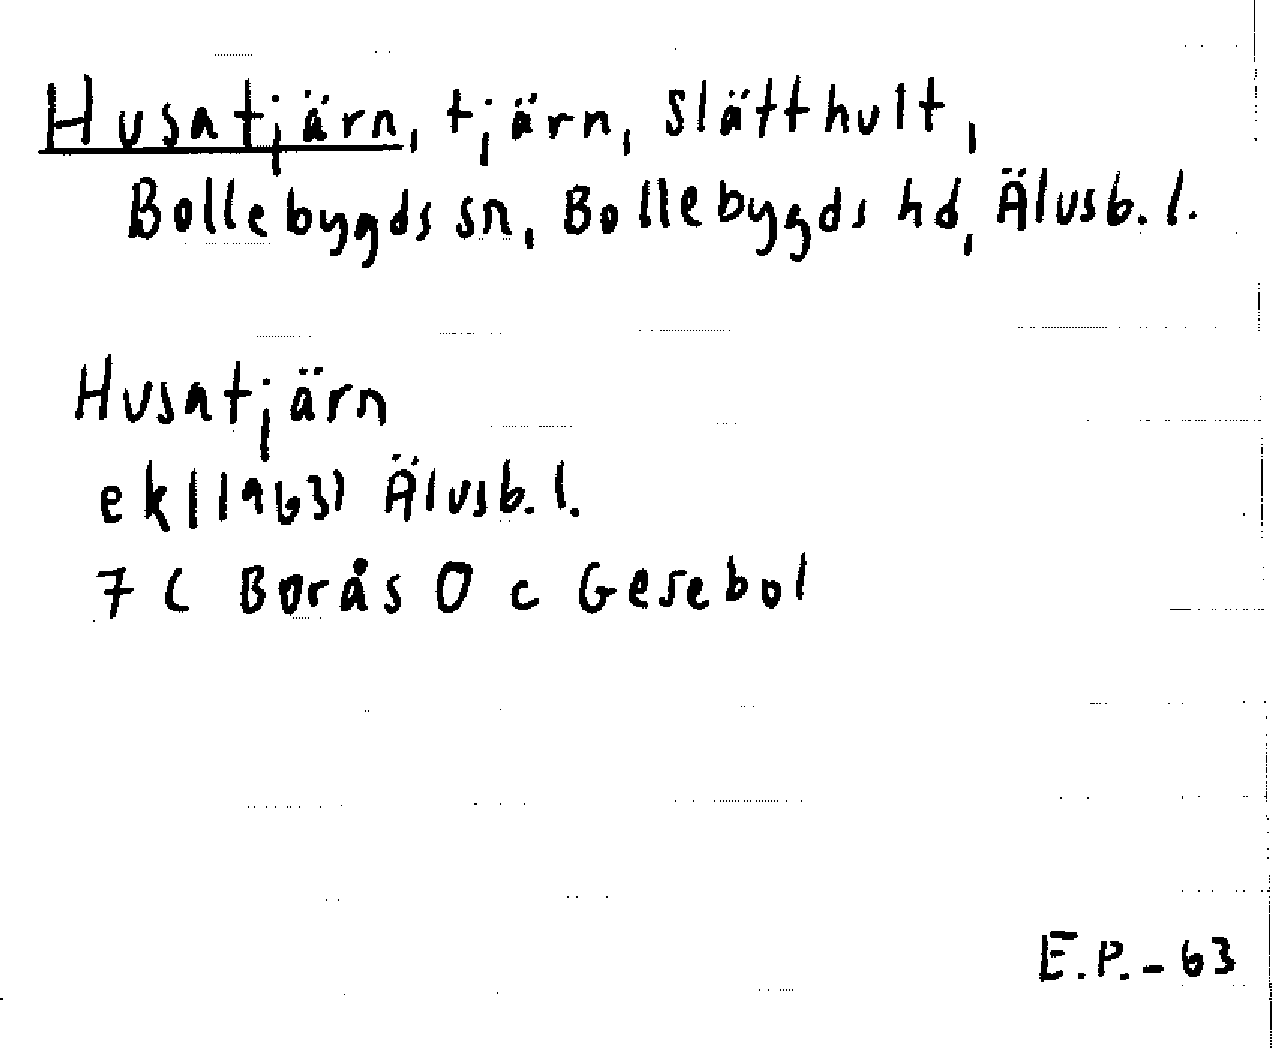 Husatjärn, tjärn, Slätthult,
Bollebygds sn, Bollebygds hd, Älvsb. l.
Husatjärn
ek (1963) Älvsb. l.
7 C Borås O c Gesebol
E.P. - 63